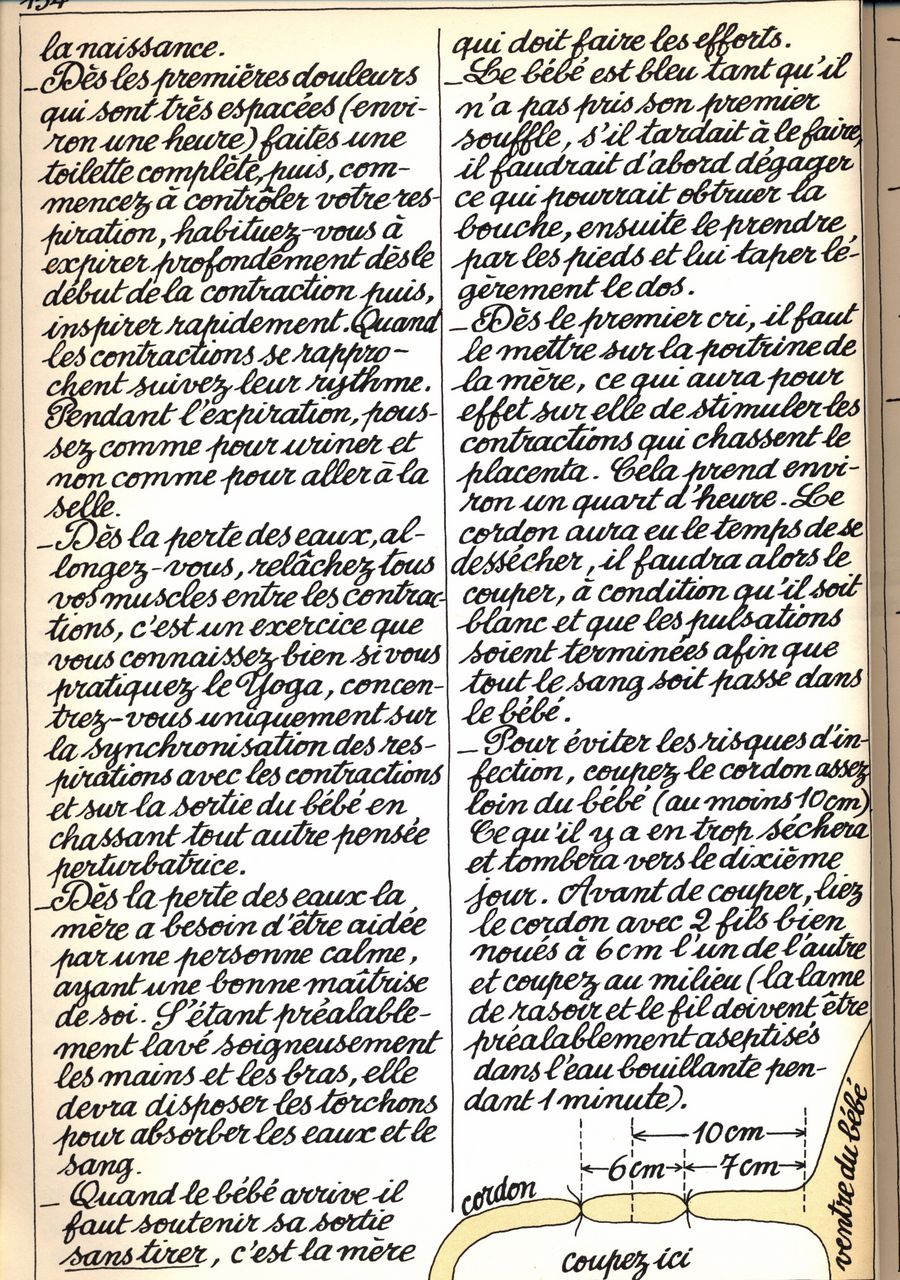 la naissance.
_Dès les premières douleurs
qui sont très espacées (envi-
ron une heure) faites une
toilette complète, puis, com-
mencez à contrôler votre res-
piration, habituez-vous à
expirer profondément dès le
début de la contraction puis,
inspirer rapidement. Quand
les contractions se rappro-
chent suivez leur rythme.
Pendant l'expiration, pous-
sez comme pour uriner et
non comme pour aller à la
selle.
_Dès la perte des eaux, al-
longez-vous, relâchez tous
vos muscles entre les contrac-
tions, c'est un exercice que
vous connaissez bien si vous
pratiquez le Yoga, concen-
trez-vous uniquement sur
la synchronisation des res-
pirations avec les contractions
et sur la sortie du bébé en
chassant tout autre pensée
perturbatrice.
_Dès la perte des eaux la
mère a besoin d'être aidée
par une personne calme,
ayant une bonne maîtrise
de soi. S'étant préalable-
ment lavé soigneusement
les mains et les bras, elle
devra disposer les torchons
pour absorber les eaux et le
sang.
_ Quand le bébé arrive il
faut soutenir sa sortie
sans tirer, c'est la mère
qui doit faire les efforts.
_Le bébé est bleu tant qu'il
n'a pas pris son premier
souffle, s'il tardait à le faire,
il faudrait d'abord dégager
ce qui pourrait obtruer la
bouche, ensuite le prendre
par les pieds et lui taper lé-
gèrement le dos.
_Dès le premier cri, il faut
le mettre sur la poitrine de
la mère, ce qui aura pour
effet sur elle de stimuler les
contractions qui chassent le
placenta. Cela prend envi-
ron un quart d'heure. Le
cordon aura eu le temps de se
dessécher, il faudra alors le
couper, à condition qu'il soit
blanc et que les pulsations
soient terminées afin que
tout le sang soit passé dans
le bébé.
_Pour éviter les risques d'in-
fection, coupez le cordon assez
loin du bébé (au moins 10cm)
Ce qu'il y a en trop séchera
et tombera vers le dixième
jour. Avant de couper, liez
le cordon avec 2 fils bien
noués à 6cm l'un de l'autre
et coupez au milieu (la lame
de rasoir et le fil doivent être
préalablement aseptisés
dans l'eau bouillante pen-
dant 1 minute).
10cm
6cm
7cm
cordon
coupez ici
ventre du bébé